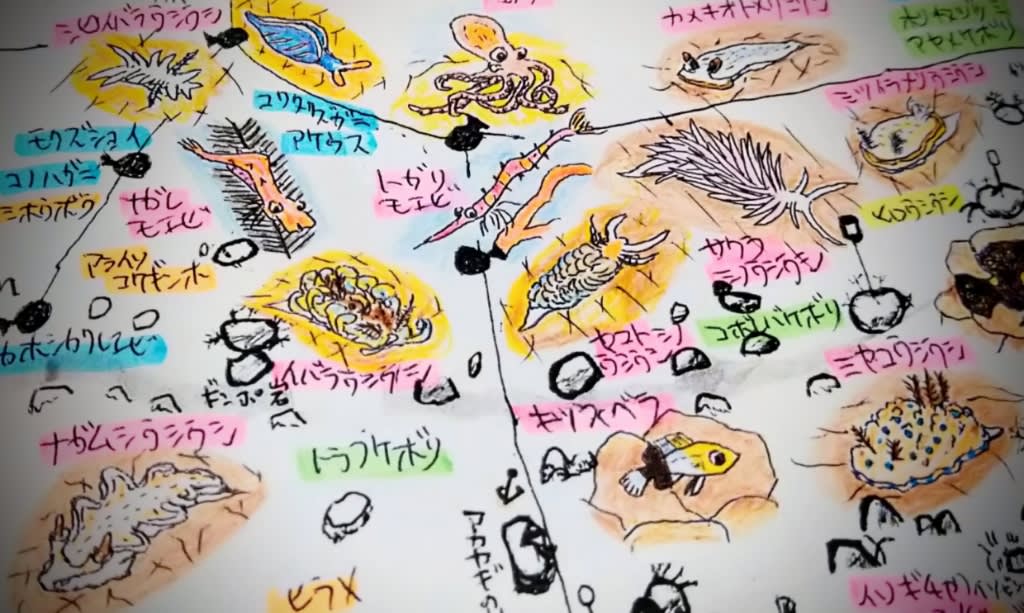 シロイバラウミウシ
カメキオトメウミウシ
アヤメケボリ
ミツイラメリウミウシ
コワタクズガニ
アケウス
モクズショイ
コノハガニ
ホウボウ
ナガレ
モエビ
トガリ
モエビ
ヒロウミウシ
アライソ
コケギンポ
サクラ
ミノウミウシ
コボレバケボリ
カボシカクレエビ
ヤマトミノ
ウミウシ
イバラウミウシ
ギンポ岩
ミヤコウミウシ
キツネベラ
ナガムシウミウシ
トラフケボリ
アカヤギ
ヒラメ
イソギチャク